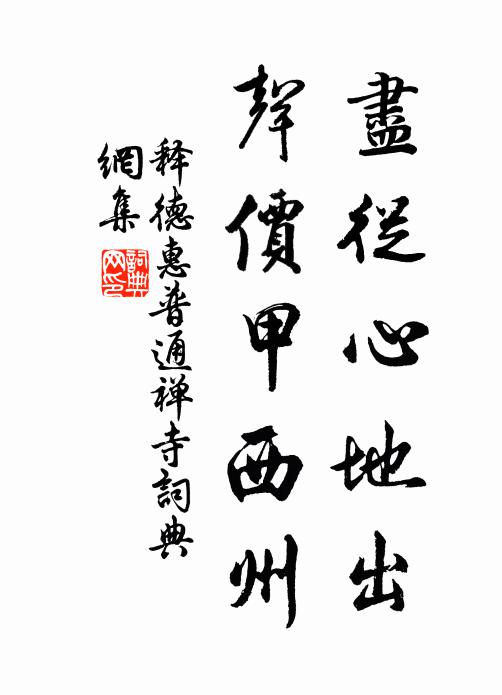 盡從心地出
聲價甲西州
释德惠普通禅寺詞典
網集
詞典
网印